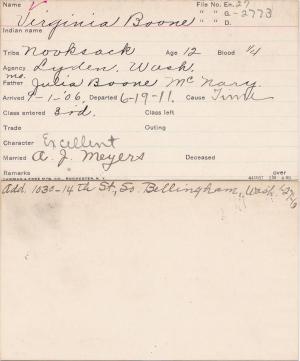 Name
File No. En. 27
Virginia Boone
" " G.-2773
Indian name
" " D.
Tribe Nooksack Age 12 Blood 1/4
Agency Lynden, Wash.
mo.
Father Julia Boone McNary.
Arrived 9-1-'06, Departed 6-19-11. Cause Time
Class entered 3rd. Class left
Trade Outing
Character Excellent
Married A. J. Meyers Deceased
Remarks over
Add. 1030-14th St, So. Bellingham, Wash.